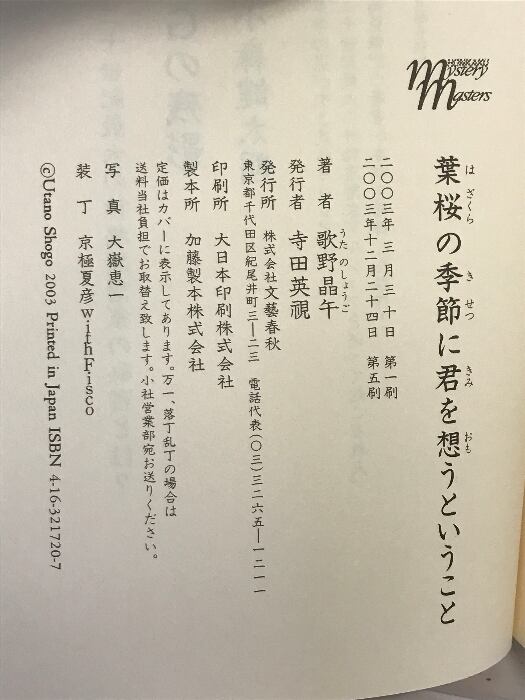 HONKAKU
Mystery
Masters
葉桜の季節に君を想うということ
はざくら
きせつ
きみ
おも
二〇〇三年 三月三十日 第一刷
二〇〇三年十二月二十四日 第五刷
著者 歌野晶午
うたのしょうご
発行者 寺田英視
発行所 株式会社文藝春秋
東京都千代田区紀尾井町三―二三 電話代表(〇三)三二六五―一二一一
印刷所 大日本印刷株式会社
製本所 加藤製本株式会社
定価はカバーに表示してあります。万一、落丁乱丁の場合は
送料当社負担でお取替え致します。小社営業部宛お送りください。
写真 大嶽恵一
装丁 京極夏彦withFisco
©Utano Shogo 2003 Printed in Japan ISBN 4-16-321720-7